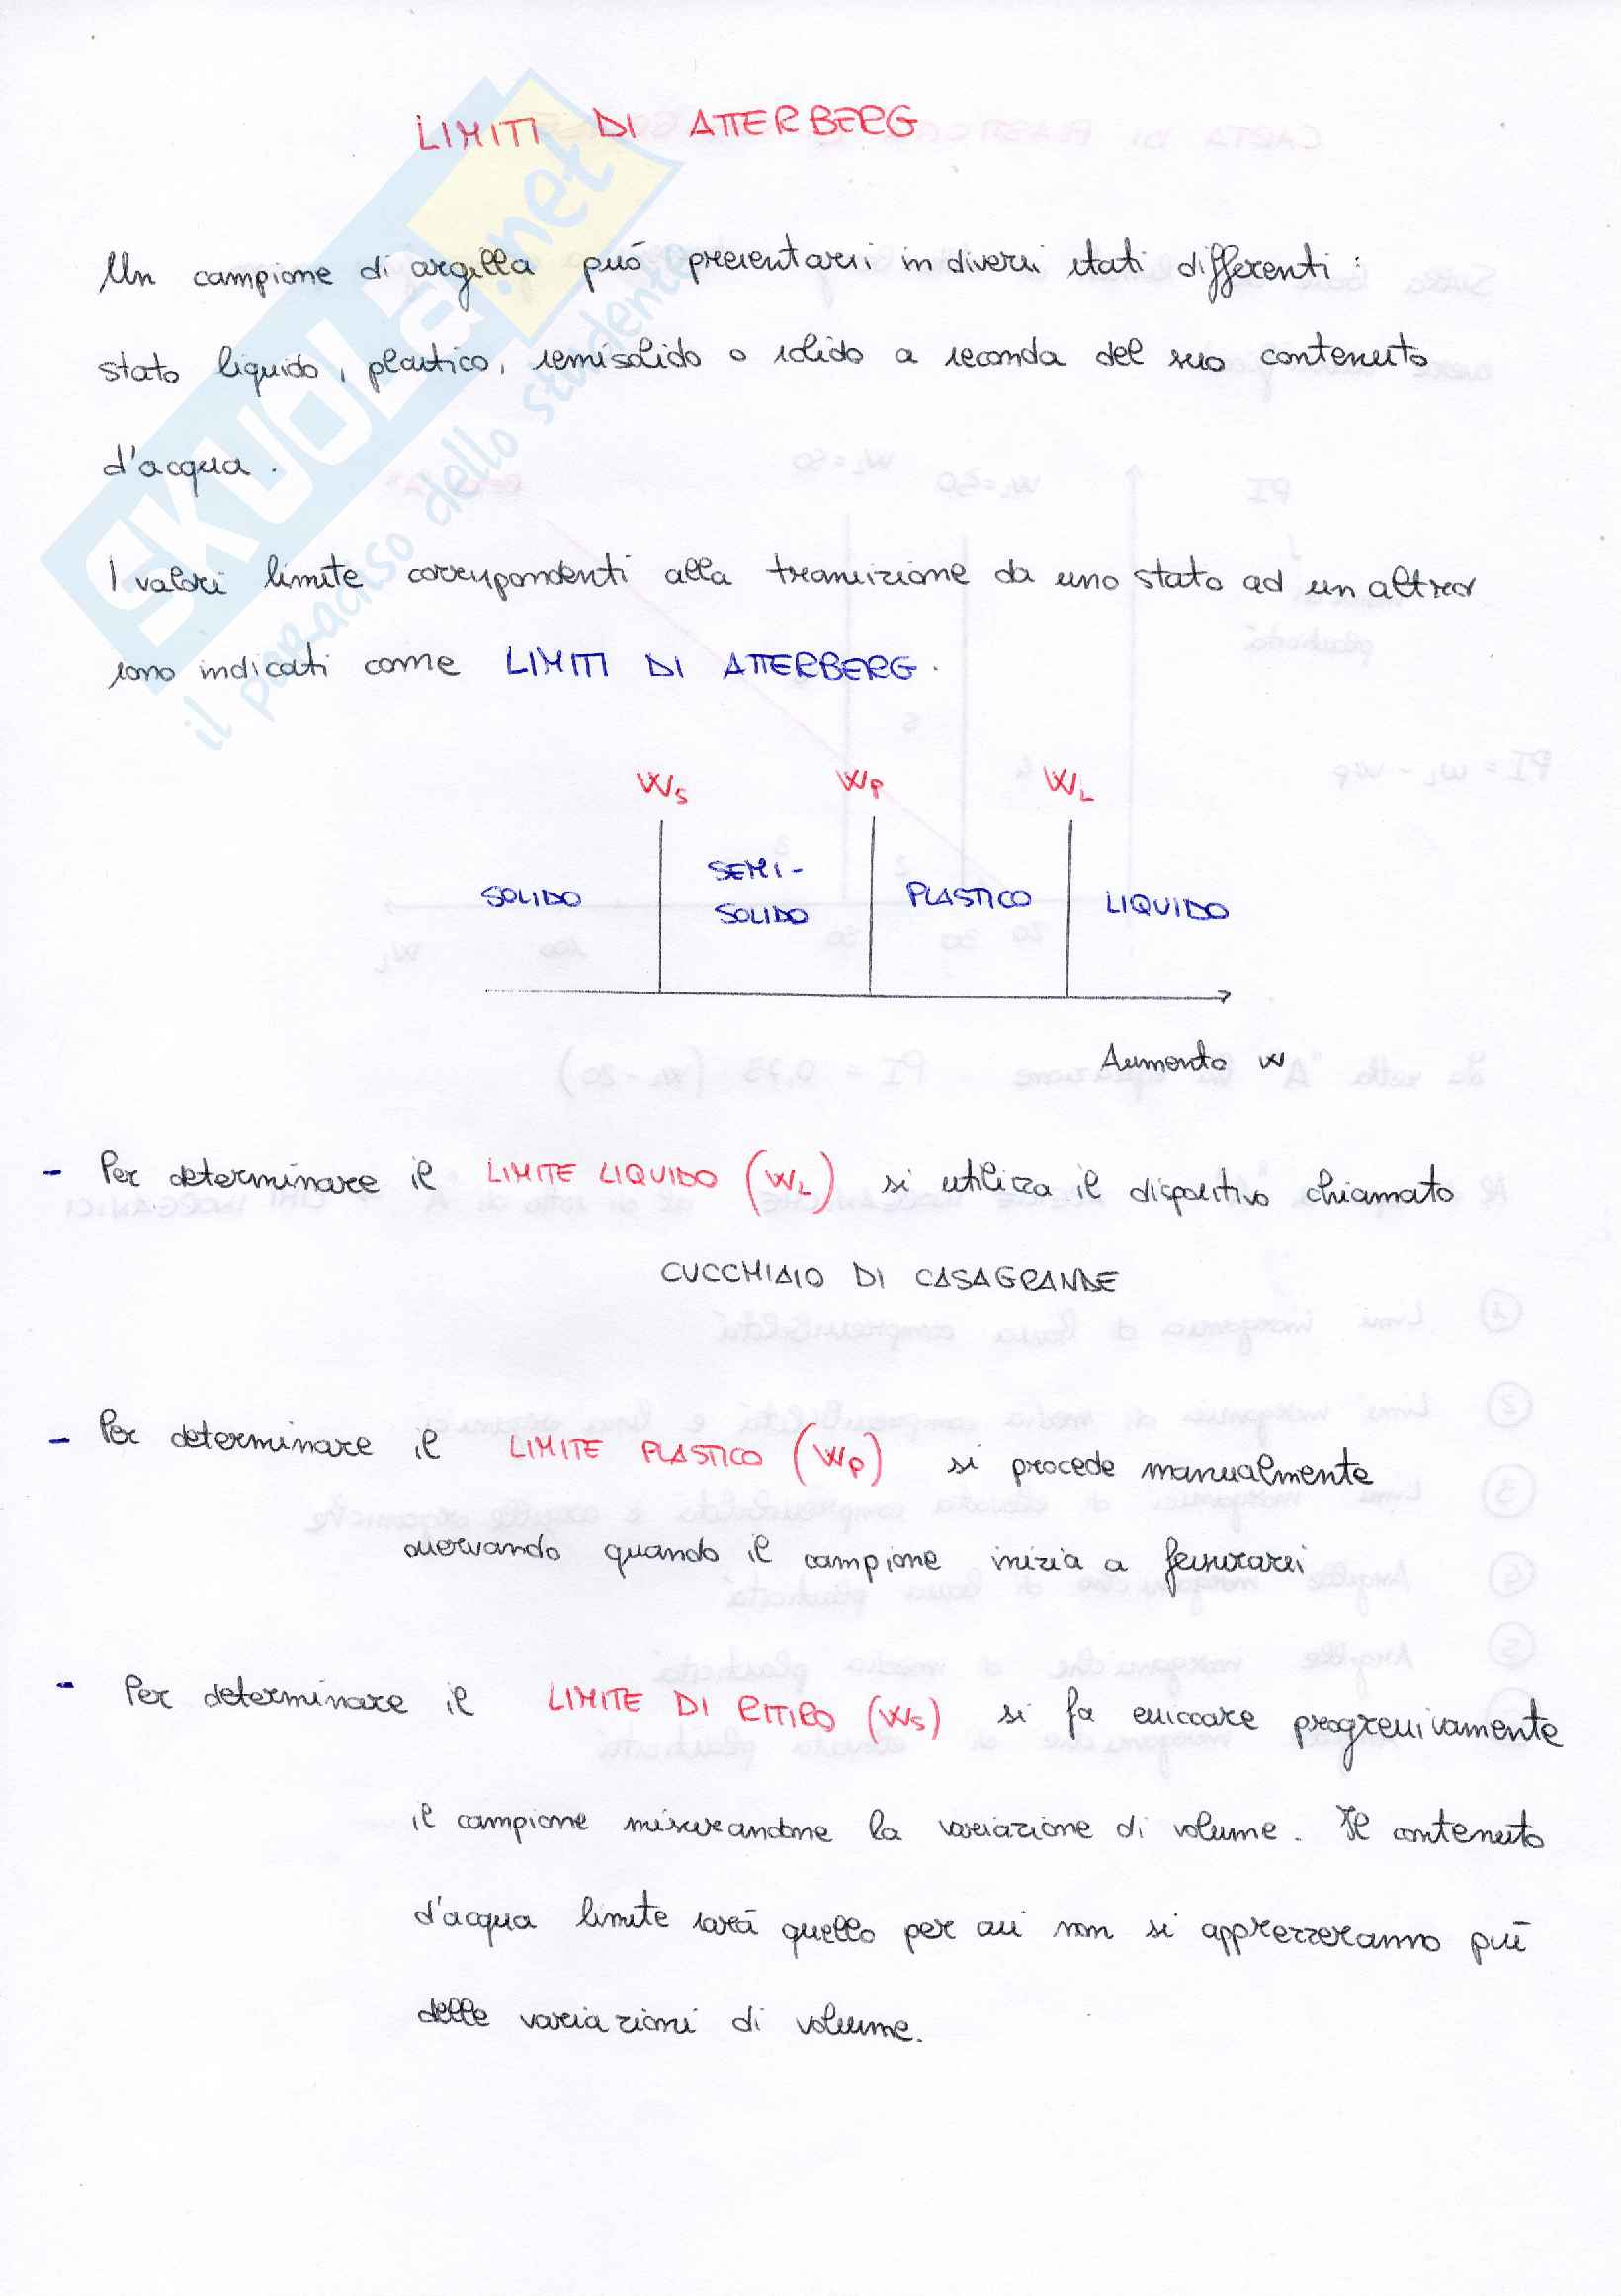 LIMITI DI ATTERBERG
Un campione di argilla può presentarsi in diversi stati differenti :
stato liquido, plastico, semisolido o solido a seconda del suo contenuto
d'acqua .
I valori limite corrispondenti alla transizione da uno stato ad un altro
sono indicati come LIMITI DI ATTERBERG .
WS WP WL
SOLIDO SEMI- PLASTICO LIQUIDO
SOLIDO
Aumento w
- Per determinare il LIMITE LIQUIDO (WL) si utilizza il dispositivo chiamato
CUCCHIAIO DI CASAGRANDE
- Per determinare il LIMITE PLASTICO (WP) si procede manualmente
osservando quando il campione inizia a fessurarsi
- Per determinare il LIMITE DI RITIRO (WS) si fa essiccare progressivamente
il campione misurandone la variazione di volume. Il contenuto
d'acqua limite sarà quello per cui non si apprezzeranno più
delle variazioni di volume.
SKUOLA.net
il paradiso dello studente